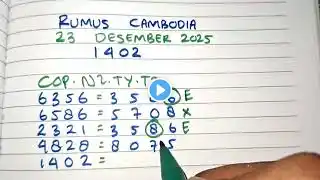 RUMUS CAMBODIA
23 DESEMBER 2025
1402
COP. N2. TY. T3
6356 = 3586 E
6586 = 5708 X
2321 = 3586 E
9828 = 8075
1402 =